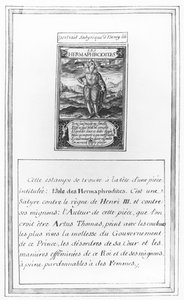 Portrait Satyrique d'Henry III
LES
HERMAPHRODITES
Cette estampe se trouve à la tête d'une piéce
intitulée: L'Isle des Hermaphrodites. C'est une
Satyre contre le régne de Henri III. et contre
ses mignons; l'Auteur de cette piéce, que l'on
croit être Artus Thomas, peint avec les couleurs
les plus vives la mollesse du Gouvernement
de ce Prince, les désordres de sa Cour et les
manieres efféminées de ce Roi et de ses mignons,
à peine pardonnables à des Femmes.